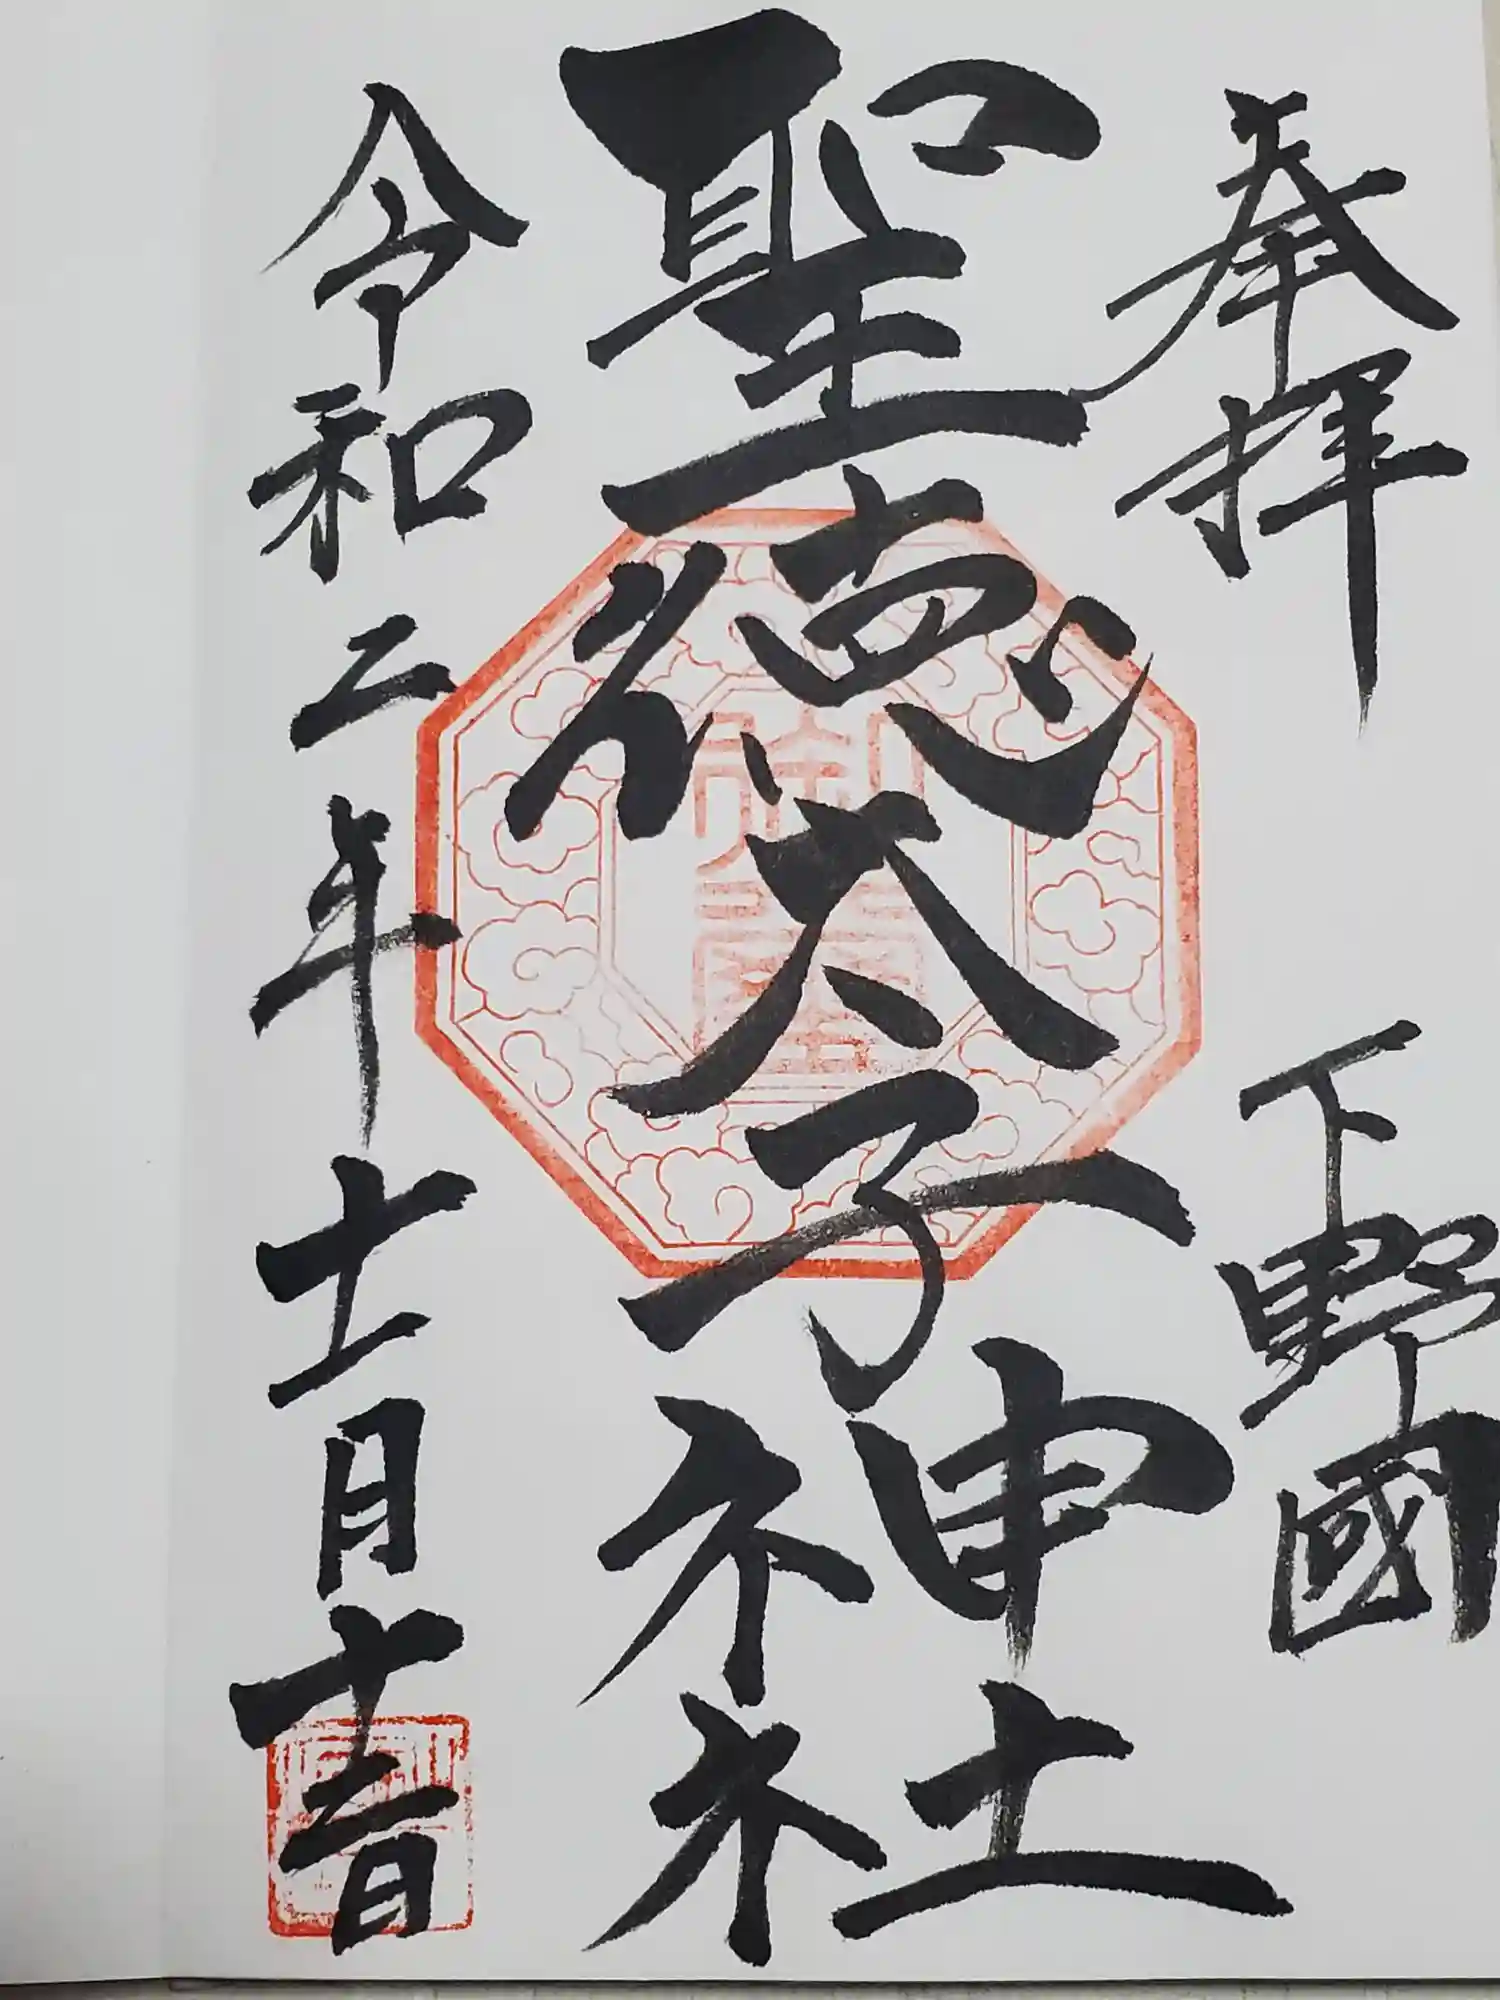 奉拝 下野國
聖徳太子神社
令和二年十一月十二日